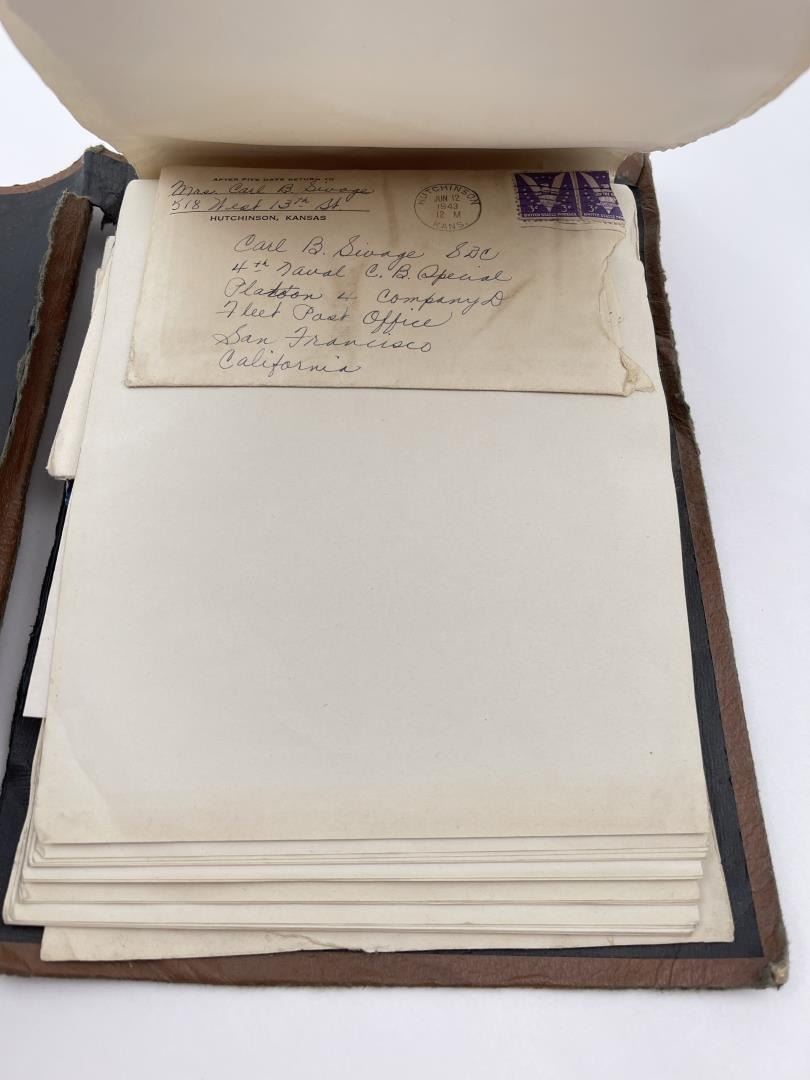 AFTER FIVE DAYS RETURN TO
Mrs. Carl B. Sivage
518 West 13th St.
HUTCHINSON, KANSAS
HUTCHINSON
JUN 12
1943
12 M
KANS.
3¢ 3¢
UNITED STATES POSTAGE UNITED STATES POSTAGE
Carl B. Sivage SDC
4th Naval C. B. Special
Platoon 4 Company D
Fleet Post Office
San Francisco
California